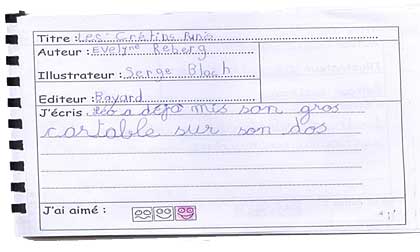 Titre : Les Crétins Punis
Auteur : Evelyne Reberg
Illustrateur : Serge Bloch
Editeur : Bayard
J'écris Léo a déjà mis son gros
cartable sur son dos
J'ai aimé :